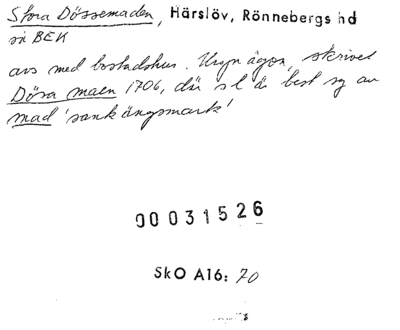 Stora Dössemaden, Härslöv, Rönnebergs hd
si BEK
avs med bostadshus. Urspr ägon, skrivet
Dösa maen 1706, där sl är best sg av
mad 'sank ängsmark'
00031526
SkO A16: 70